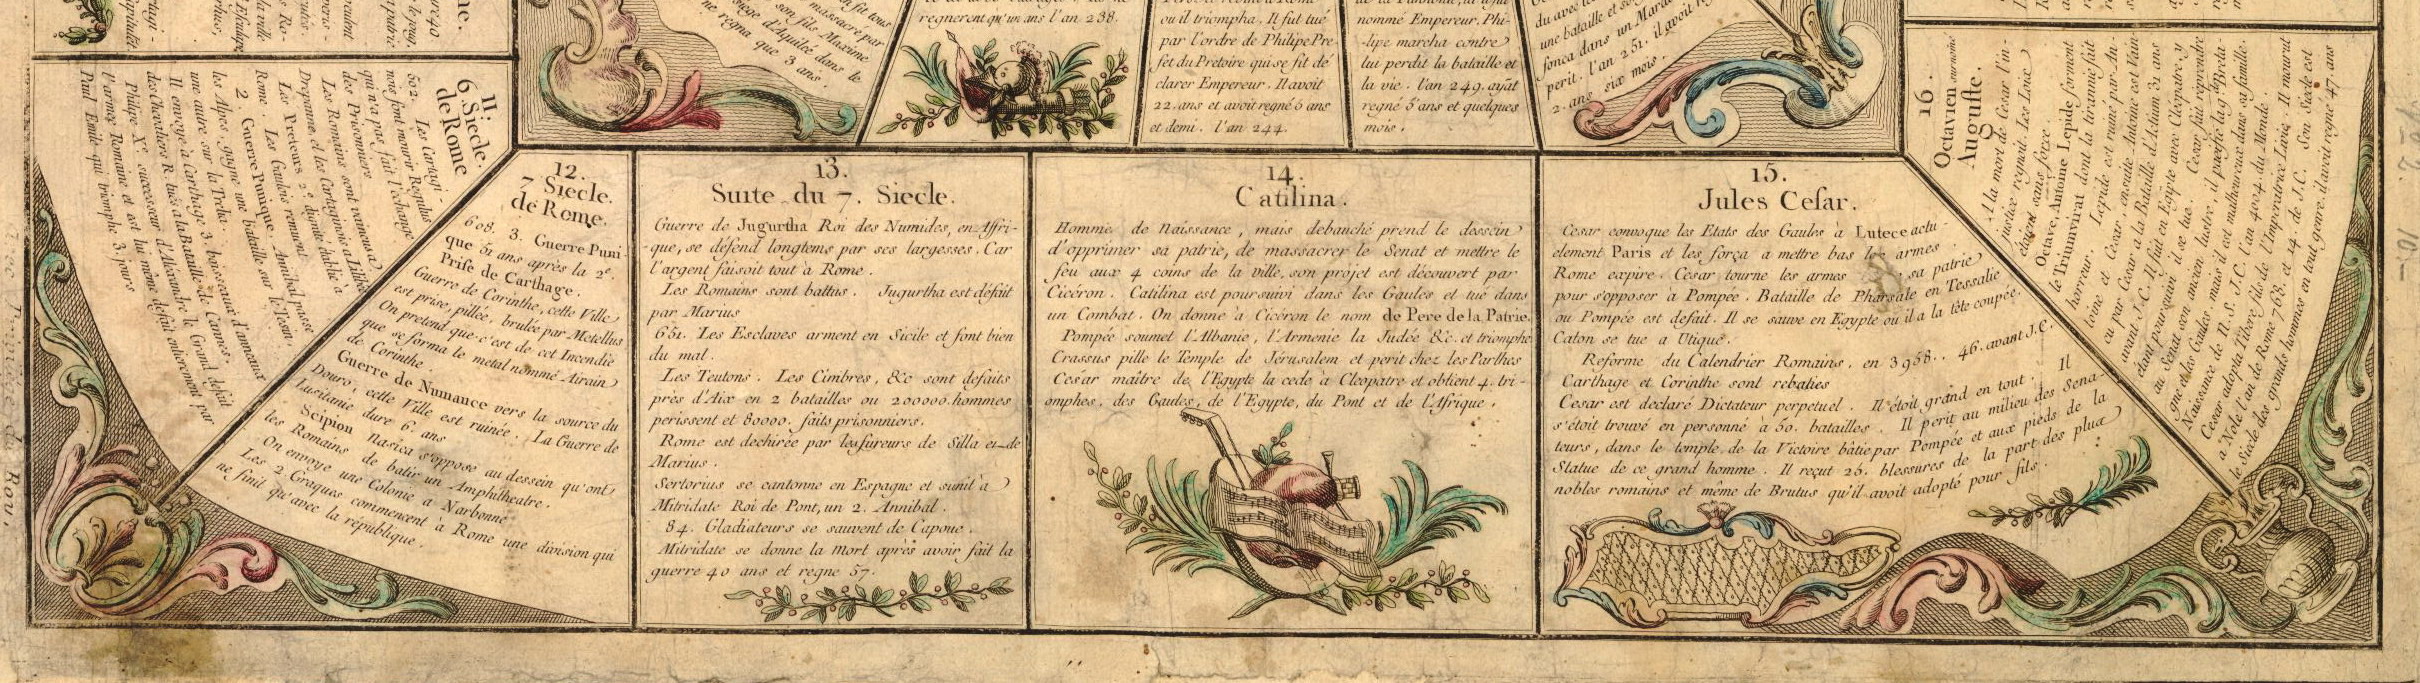 regnerent qu'un ans l'an 238.
ou il triompha. Il fut tué
par l'ordre de Philipe Pre-
fet du Pretoire qui se fit dé
clarer Empereur. Il avoit
22. ans et avoit regné 6 ans
et demi. l'an 244.
nommé Empereur. Phi-
-lipe marcha contre
lui perdit la bataille et
la vie. l'an 249. ayāt
regné 5 ans et quelques
mois.
une bataille et
fonça dans un Marais
perit. l'an 251. il avoit
2. ans six mois.
massacre par
son fils Maxime
siege d'Aquilée dans le
ne regna que 3 ans
II.
6 Siecle.
de Rome
502. Les Cartagi-
nois font mourir Regulus
qui n'a pas fait l'echange
des Prisonniers
Les Romains sont vaincus a
Drepanne, et les Cartaginois a Lilibée
Les Preteurs 2.e dignité établie a
Rome. Les Gaulois remuent.
2 Guerre Punique. Annibal passe
les Alpes gagne une bataille sur le Tesin,
une autre sur la Trebia. 3. boisseaux d'anneaux
Il envoye à Carthage
des Chevaliers R. tués a la Bataille de Cannes.
Philipe X.e successeur d'Alexandre le Grand defait
l'armée Romaine et est lui même defait entierement par
Paul Emile qui triomphe 3 jours
12.
7 Siecle.
de Rome.
608. 3. Guerre Puni-
que 51 ans après la 2.e
Prise de Carthage.
Guerre de Corinthe, cette Ville
est prise, pillée, brulée par Metellus
On pretend que c'est de cet Incendie
que se forma le metal nommé Airain
de Corinthe
Guerre de Numance vers la source du
Douro, cette Ville est ruinée. La Guerre de
Lusitanie dure 6. ans
Scipion Nasica s'oppose au dessein qu'ont
les Romains de batir un Amphitheatre.
On envoye une Colonie a Narbonne
Les 2 Graques commencent à Rome une division qui
ne finit qu'avec la république.
13.
Suite du 7. Siecle.
Guerre de Jugurtha Roi des Numides, en Affri-
que, se defend longtems par ses largesses. Car
l'argent faisoit tout à Rome.
Les Romains sont battus. Jugurtha est défait
par Marius
651. Les Esclaves arment en Sicile et font bien
du mal.
Les Teutons. Les Cimbres, &c sont defaits
près d'Aix en 2 batailles ou 200000. hommes
perissent et 80000. faits prisonniers.
Rome est dechirée par les fureurs de Silla et de
Marius.
Sertorius se cantonne en Espagne et s'unit à
Mitridate Roi de Pont, un 2. Annibal.
84. Gladiateurs se sauvent de Capoue.
Mitridate se donne la mort après avoir fait la
guerre 40 ans et regne 57.
14.
Catilina.
Homme de naissance, mais debauché prend le dessein
d'opprimer sa patrie, de massacrer le Senat et mettre le
feu aux 4 coins de la ville, son projet est découvert par
Cicéron. Catilina est poursuivi dans les Gaules et tué dans
un Combat. On donne à Cicéron le nom de Pere de la Patrie.
Pompée soumet l'Albanie, l'Armenie la Judée &c. et triomphe
Crassus pille le Temple de Jérusalem et perit chez les Parthes
César maître de l'Egypte la cede à Cleopatre et obtient 4. tri-
omphes, des Gaules, de l'Egypte, du Pont et de l'Afrique.
15.
Jules Cesar.
Cesar convoque les Etats des Gaules a Lutece actu-
element Paris et les força a mettre bas les armes
Rome expire. Cesar tourne les armes sa patrie
pour s'opposer à Pompée. Bataille de Pharsale en Tessalie
ou Pompée est defait. Il se sauve en Egypte ou il a la tête coupée.
Caton se tue a Utique.
Reforme du Calendrier Romains, en 3958. 46. avant J.C.
Carthage et Corinthe sont rebaties
Cesar est declaré Dictateur perpetuel. Il étoit grand en tout. Il
s'étoit trouvé en personne a 50. batailles. Il perit au milieu des Sena-
teurs, dans le temple de la Victoire bâtie par Pompée et aux pieds de la
Statue de ce grand homme. Il reçut 23. blessures de la part des plus
nobles romains et même de Brutus qu'il avoit adopté pour fils.
16.
Octavien surnomé
Auguste.
A la mort de Cesar l'in-
justice regnoit. Les Loix
étoient sans force
Octave, Antoine, Lepide forment
le Triumvirat dont la tiramie fait
horreur. Lepide est ruiné par An-
toine et César, ensuite Antoine est Vain-
cu par Cesar a la Bataille d'Actium 31 ans
avant J.C. Il fuit en Egipte avec Cléopatre, y
étant poursuivi il se tue. Cesar fait reprendre
au Senat son ancien lustre, il puefie l'Espagne, la Breta-
gne et les Gaules, mais il est malheureux dans sa famille.
Naissance de N.S. J.C. l'an 4004 du Monde.
Cesar adopta Tibere fils de l'Imperatrice Livie. Il mourut
a Nole l'an de Rome 768. et 14. de J.C. Son Siecle est
le Siecle des grands hommes en tout genre. il avoit regné 47 ans
Avec Privilege du Roy.